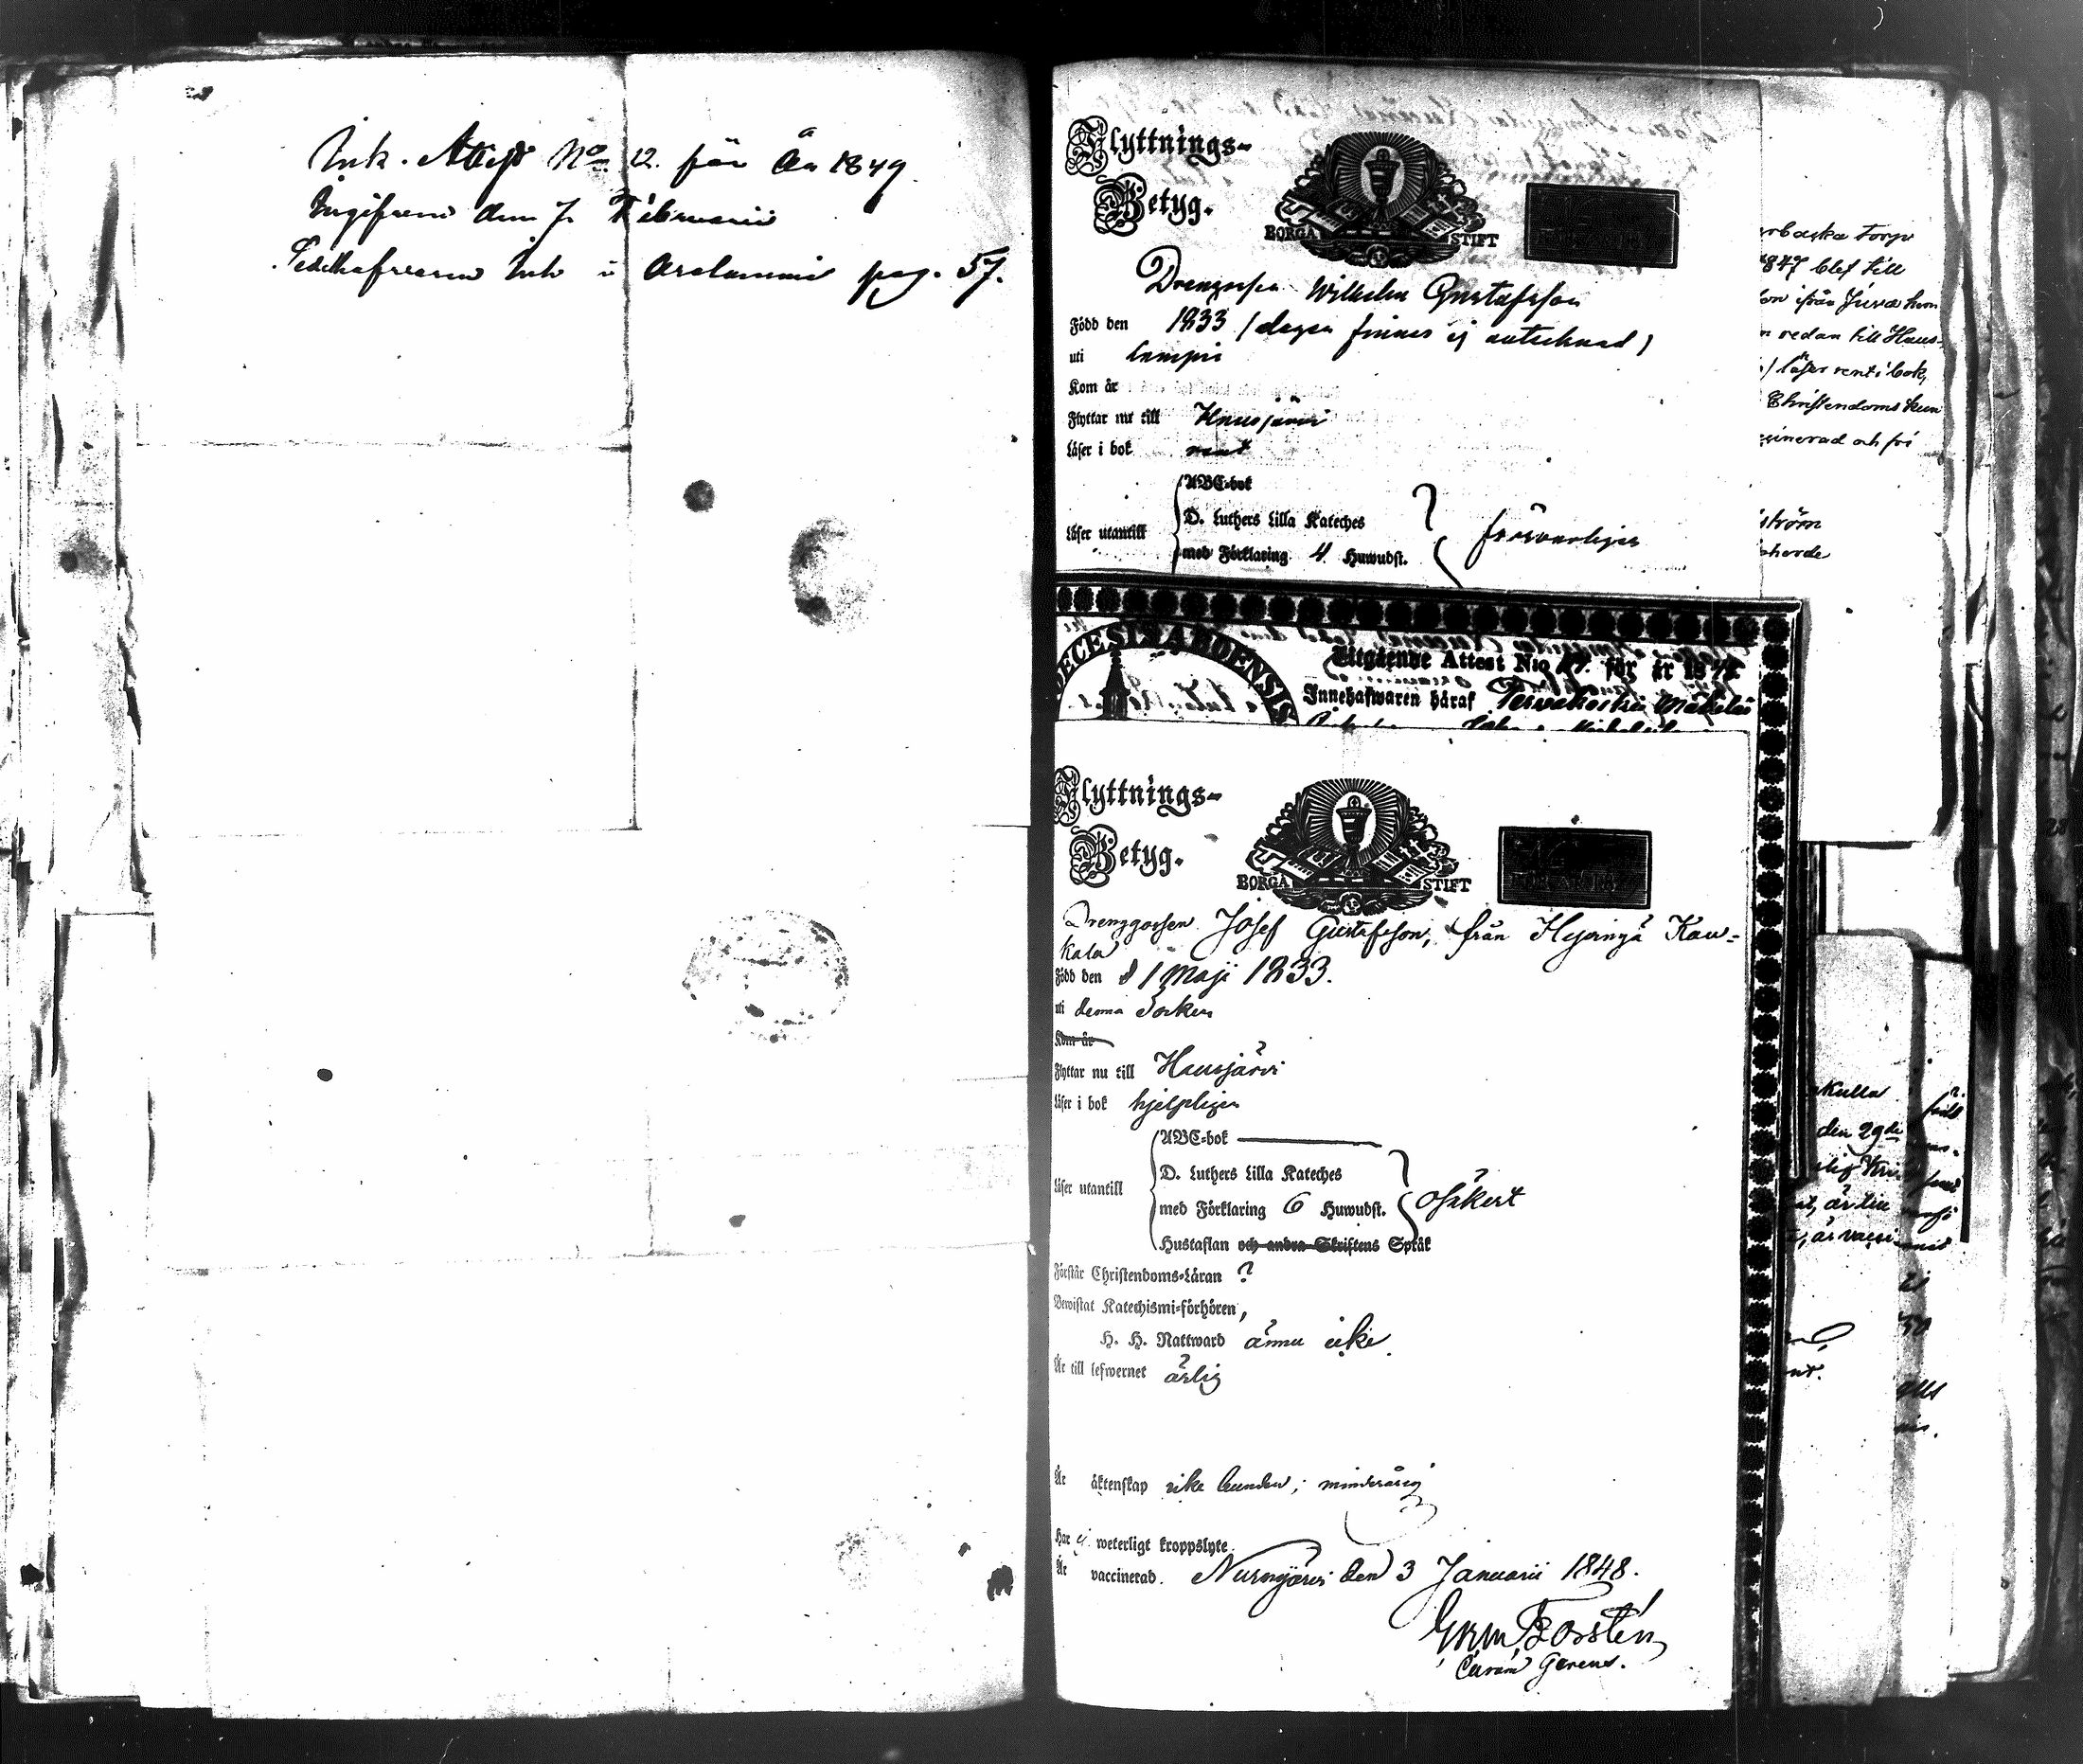 Ink. Attest No 12. för År 1849
Ingifven den 7 Februarii
Sedelhafvaren Ink i Arolammi pag. 57.
Flyttnings-
Betyg.
BORGÅ STIFT
Drengossen Wilhelm Gustafsson
Född den 1833 (dagen finnes ej antecknad)
uti Lempi
Kom år
Flyttar nu till Hausjärvi
Läser i bok rent
ABC-bok
D. Luthers Lilla Kateches
Läser utantill
med Förklaring 4 Huwudst.
försvarligen
rbacka torp
1847 blef till
redan till Haus-
läser rent i bok,
Christendoms kun
cinerad och fri
ström
DECESIS ABOENSIS
Utgående Attest N:o 17. för år 184
Innehafwaren häraf Tervakoski Mäkelä
Flyttnings-
Betyg.
BORGÅ STIFT
Drenggossen Josef Gustafsson, från Hyvingä Kau-
kala
Född den d 1 Maji 1833.
uti denna Socken
Kom år
Flyttar nu till Hausjärvi
Läser i bok hjelpligen
ABC-bok
D. Luthers Lilla Kateches
Läser utantill
med Förklaring 6 Huwudst.
osäkert
Hustaflan och andra Skriftens Språk
Förstår Christendoms-Läran ?
Bewistat Katechismi-förhören,
H. H. Nattward ännu icke
Är till lefwernet ärlig
Är äktenskap icke bunden; minderårig
Har ej weterligt kroppslyte
Är vaccinerad. Nurmijärvi den 3 Januarii 1848.
Borstén
Curam Gerens.
kulla
den 29de
är den